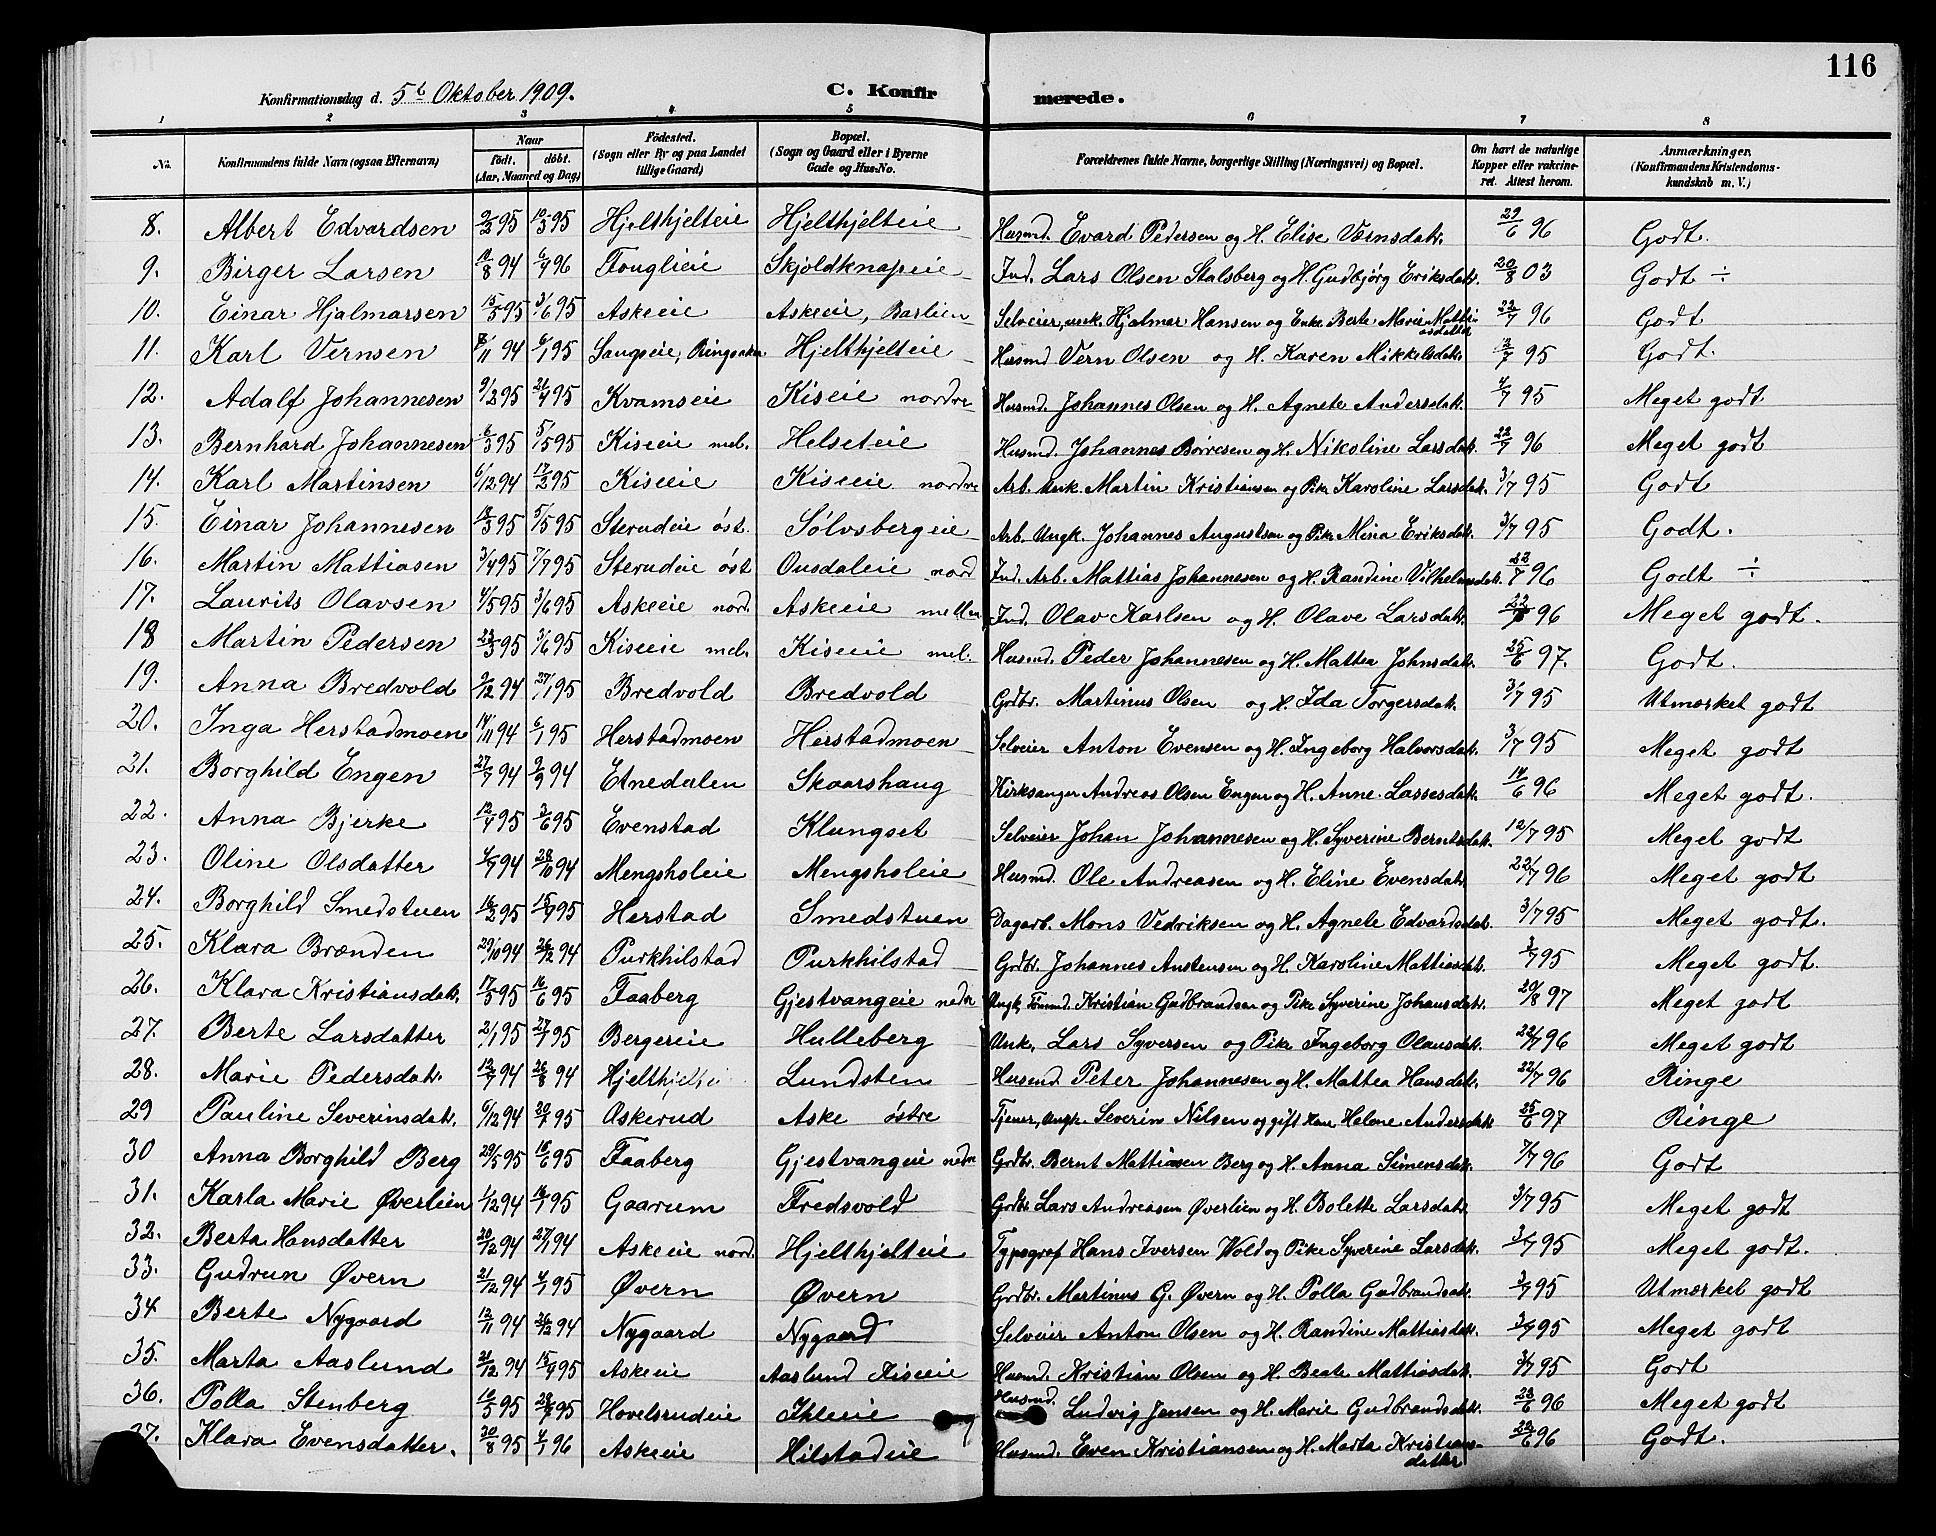 116
Konfirmationsdag d. 5t Oktober 1909. C. Konfirmerede.
1 2 3 4 5 6 7 8
No. Konfirmandens fulde Navn (ogsaa Efternavn) Naar født. døbt. (Aar, Maaned og Dag) Fødested. (Sogn eller By og paa Landet tillige Gaard) Bopæl. (Sogn og Gaard eller i Byerne Gade og Hus-No. Forældrenes fulde Navne, borgerlige Stilling (Næringsvei) og Bopæl. Om havt de naturlige Kopper eller vakcineret. Attest herom. Anmærkninger. (Konfirmandens Kristendomskundskab m. V.)
8. Albert Edvardsen 9/2 95 10/3 95 Hjelthjelteie Hjelthjelteie Husmd. Evard Pedersen og H. Elise Værnsdatr. 29/6 96 Godt.
9. Birger Larsen 11/8 94 6/4 96 Fouglieie Skjoldknapeie Ind. Lars Olsen Stalsberg og H. Gudbjørg Eriksdatr. 20/8 03 Godt ÷
10. Einar Hjalmarsen 15/5 95 3/6 95 Askeeie Askeeie, Barlien Selveier, unk. Hjalmar Hansen og Enke Berte Marie Mattisdatter 22/7 96 Godt
11. Karl Vernsen 8/11 94 6/1 95 Saugseie, Ringsaker Hjelthjelteie Husmd Vern Olsen og H. Karen Mikkelsdatr. 12/7 95 Godt.
12. Adalf Johannesen 9/2 95 21/4 95 Kvamseie Kiseie nordre Husmd. Johannes Olsen og H. Agnete Andersdatr. 4/7 95 Meget godt
13. Bernhard Johannesen 6/3 95 5/5 95 Kiseeie mel. Helseteie Husmd. Johannes Børresen og H. Nikoline Larsdatr. 22/7 96 Meget godt
14. Karl Martinsen 6/12 94 17/2 95 Kiseeie Kiseeie nordre Arb. Unk. Martin Kristiansen og Pike Karoline Larsdatr. 3/7 95 Godt
15. Einar Johannesen 18/3 95 5/5 95 Sterudeie øst. Sølvsbergeie Arb. Ungk. Johannes Augustsen og Pike Mina Eriksdatr. 3/7 95 Godt.
16. Martin Mattiasen 3/4 95 7/7 95 Sterudeie øst Onsdaleie nord Ind. Arb. Mattias Johannesen og H. Randine Vilhelmsdatr. 22/7 96 Godt ÷
17. Laurits Olavsen 4/5 95 3/6 95 Askeeie nord. Askeeie mellem Ind. Olav Karlsen og H. Olave Larsdatr. 96 Meget godt.
18 Martin Pedersen 23/3 95 3/6 95 Kiseeie mel. Kiseeie mel. Husmd. Peder Johannesen og H. Mattea Johnsdatr. 25/6 97. Godt.
19. Anna Bredvold 9/12 94 27/1 95 Bredvold Bredvold Grdbr. Martinus Olsen og H. Ida Torgersdatr. 3/7 95 Utmærket godt
20. Inga Herstadmoen 14/11 94 6/1 95 Herstadmoen Herstadmoen Selveier Anton Evensen og H. Ingeborg Halvorsdatr. 3/7 95 Meget godt
21. Borghild Engen 27/7 94 2/9 94 Etnedalen Skaarshaug Kirksanger Andreas Olsen Engen og H. Anne Lassesdatr. 14/6 96 Meget godt.
22. Anna Bjerke 12/4 95 3/6 95 Evenstad Klungset Selveier Johan Johannesen og H. Syverine Berntsdatr. 12/7 95 Meget godt
23. Oline Olsdatter 4/9 94 28/10 94 Mengsholeie Mengsholeie Husmd. Ole Andreasen og H. Eline Evensdatr. 22/7 96 Meget godt
24. Borghild Smedstuen 16/2 95 15/4 95 Herstad Smedstuen Dagarb. Mons Vedriksen og H. Agnete Edvardsdatr. 3/7 95 Meget godt.
25. Klara Brænden 29/10 94 26/12 94 Purkhilstad Purkhilstad Grdbr. Johannes Anstensen og H. Karoline Mattiasdatr. 3/7 95 Meget godt.
26. Klara Kristiansdatr. 17/5 95 16/6 95 Faaberg Gjestvangeie nedre Ungk. Kristian Gudbrandsen og Pike Syverine Johansdatr. 20/8 97 Meget godt
27. Berte Larsdatter 2/1 95 95 Bergeeie Hulleberg Unk. Lars Syversen og Pike Ingeborg Olausdatr. 22/7 96 Meget godt
28. Marie Pedersdatr. 12/7 94 26/8 94 Hjelthjeltei Lundsten Husmd. Peter Johannesen og H. Mattea Hansdatr. 22/7 96 Ringe
29 Pauline Severinsdatr. 6/12 94 95 Oskerud Aske østre Tjener, Ungk. Severin Nilsen og gift Kone Helene Andersdatr. 25/6 97 Ringe
30 Anna Borghild Berg 29/3 95 16/6 95 Faaberg Gjestvangeie nedre Grdbr. Bernt Mattiasen Berg og H. Anna Simensdatr. 7/7 96 Godt
31. Karla Marie Øverlien 1/12 94 95 Gaarum Fredsvold Grdbr. Lars Andreasen Øverlien og H. Bolette Larsdatr. 3/7 95 Meget godt
32. Berta Hansdatter 20/12 94 94 Askeeie nord. Hjelthjelteie Typograf Hans Iversen Wold og Pike Syverine Larsdatr. 3/7 95 Meget godt.
33. Gudrun Øvern 21/12 94 95 Øvern Øvern Grdbr. Martinus G. Øvern og H. Polla Gudbrandsdatr. 3/7 95 Utmærket godt
34 Berte Nygaard 12/11 94 26/12 94 Nygaard Nygaard Selveier Anton Olsen og H. Randine Mattiasdatr. 3/7 95 Meget godt
35. Marta Aaslund 21/12 94 15/4 95 Askeie Aaslund Kiseeie Husmd. Kristian Olsen og H. Beate Mattiasdatr. 3/7 95 Godt
36. Polla Stenberg 10/5 95 28/7 95 Hovelsrudeie Ihleeie Husmd. Ludvig Jensen og H. Marie Gudbrandsdatr. 23/6 96 Meget godt
37. Klara Evensdatter. 20/8 95 4/1 96 Askeeie Hilstadeie Husmd. Even Kristiansen og H. Marta Kristiansdatter 22/6 96 Godt.